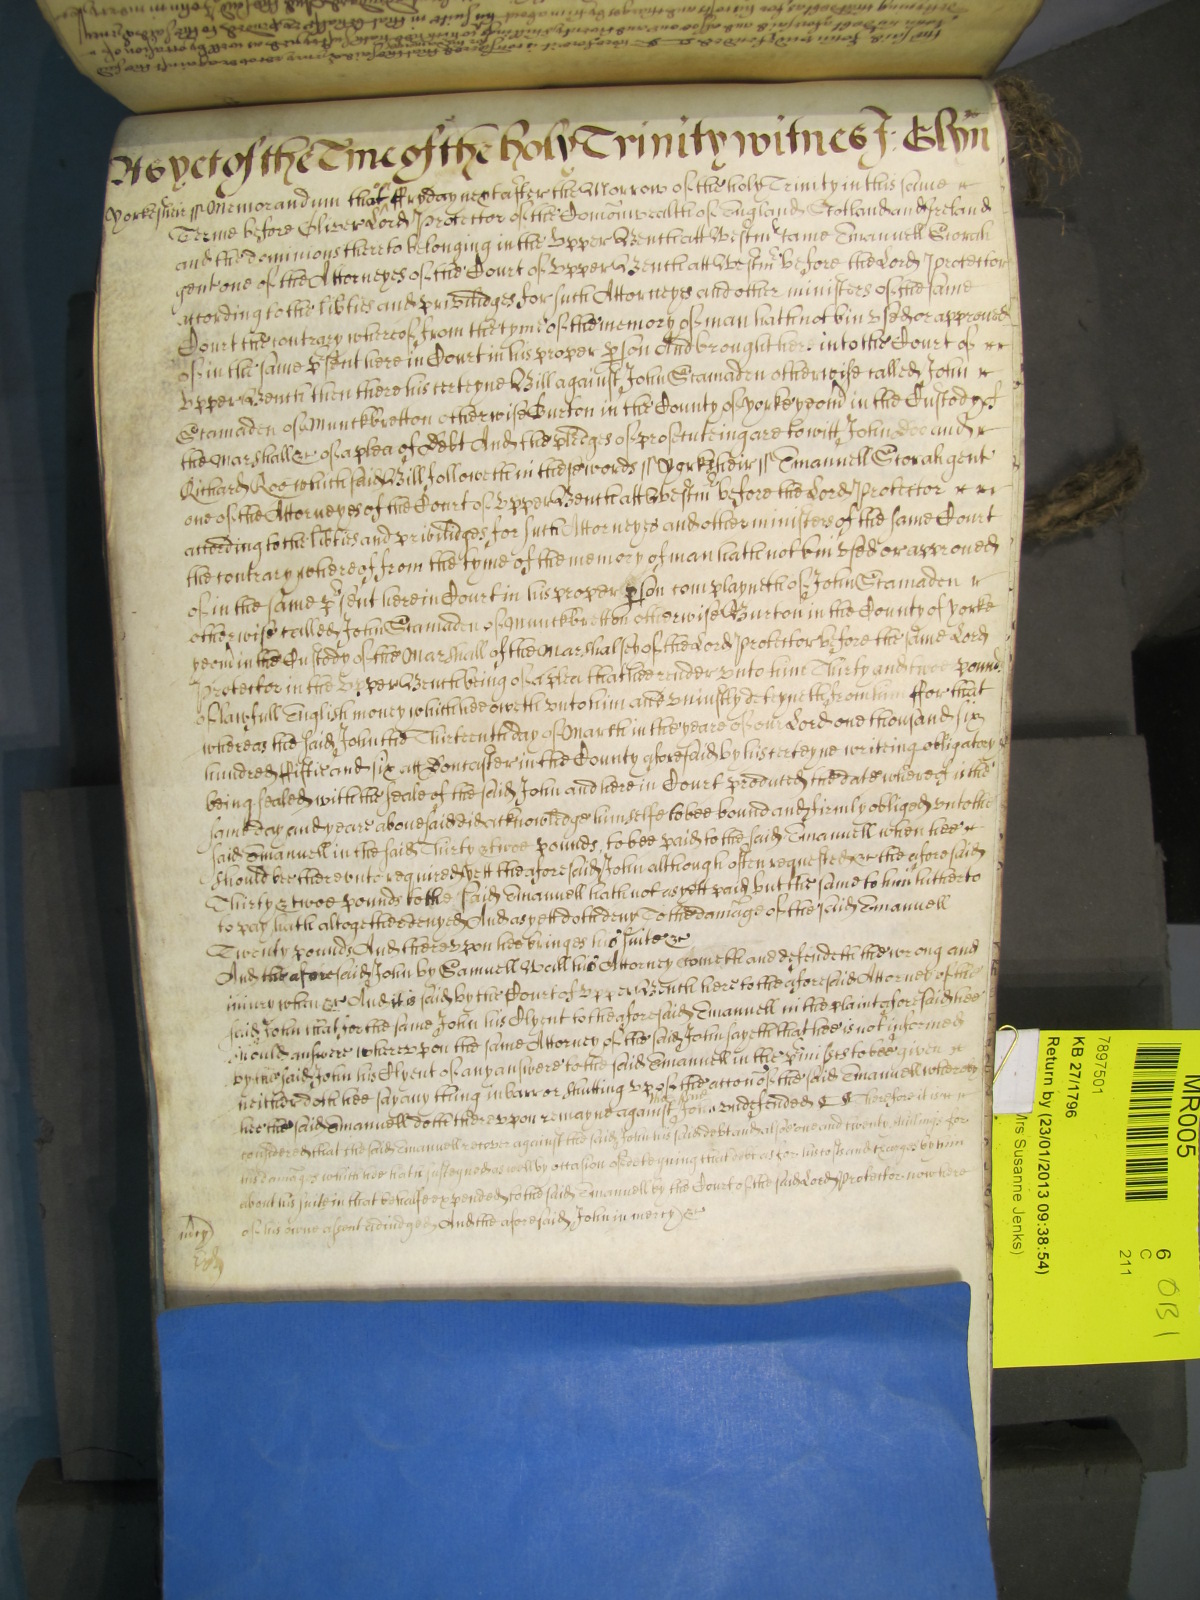 As yet of the Tme of the holy Trinity witnes J: Glyn
Yorkesheir ss Memorandum that Fryday next after the Morrow of the holy Trinity in this same
Terme before Oliver Lord Protector of the Comonwealth of England Scotland and Ireland
and the Dominions thereto belonging in the Upper Bench att Westmr came Emanuell Storah
gent one of the Attorneyes of the Court of Upper Bench att Westmr before the Lord Protector
according to the libties and priviledges for such Attorneyes and other ministers of the same
Court the contrary whereof from the tyme of the memory of man hath not bin used or approved
of in the same psent here in Court in his proper pson And brought here into the Court of
Upper Bench then there his certeyne Bill against John Stamaden otherwise called John
Stamaden of Munckbretton otherwise Burton in the County of Yorke yeom in the Custody of
the Marshall &c of a plea of debt And the pledges of prosecuteing are to witt John Doe and
Richard Roe which said Bill followeth in these words ss Yorkesheir ss Emanuell Storah gent
one of the Attorneyes of the Court of Upper Bench att Westmr before the Lord Protector
according to the libties and priviledges for such Attorneyes and other ministers of the same Court
the contrary whereof from the tyme of the memory of man hath not bin used or approved
of in the same psent here in Court in his proper pson complayneth of John Stamaden
otherwise called John Stamaden of Munckbretton otherwise Burton in the County of Yorke
yeom in the Custody of the Marshall of the Marshalsey of the Lord Protector before the same Lord
Protector in the Upper Bench being of a plea that hee render unto him Thirty and twoe pounds
of lawfull English money which hee oweth unto him and uniustly deteyneth from him For that
whereas the said John the Thirteenth day of March in the yeare of our Lord one thousand six
hundred fiftie and six att Doncaster in the County aforesaid by his certeyne writeing obligatory
being sealed with the seale of the said John and here in Court produced the date whereof is the
same day and yeare abovesaid did acknowledge himselfe to bee bound and firmly obliged unto the
said Emanuell in the said Thirty & twoe pounds to bee paid to the said Emanuell when hee
should bee thereunto required Yett the aforesaid John although often requested &c the aforesaid
Thirty & twoe pounds to the said Emanuell hath not as yett paid but the same to him hitherto
to pay hath altogether denyed And as yett doth deny To the damage of the said Emanuell
Twenty pounds And thereupon hee bringes his suite &c
And the aforesaid John by Samuell Wall his Attorney cometh and defendeth the wrong and
iniury when &c And it is said by the Court of Upper Bench here to the aforesaid Attorney of the
said John that for the same John his Clyent to the aforesaid Emanuell in the plaint aforesaid hee
should answere whereupon the same Attorney of the said John sayeth that hee is not informed
by the said John his Clyent of any answere to the said Emanuell in the pmisses to bee given
neither doth hee say any thing in barr or shutting up of the accon of the said Emanuell whereby
hee the said Emanuell doth thereupon remayne against John undefended Therefore it is
considered that the said Emanuell recover against the said John his said debt and alsoe one and twenty shillings for
his damages which hee hath susteyned as well by occasion of deteyning that debt as for his costs and charges by him
about his suite in that behalfe expended to the said Emanuell by the Court of the said Lord Protector now here
of his owne assent adiudged And the aforesaid John in mercy &c
mcy
MR005
7897501
KB 27/1796
Return by (23/01/2013 09:38:54)
Mrs Susanne Jenks)
6
C
211
OB1